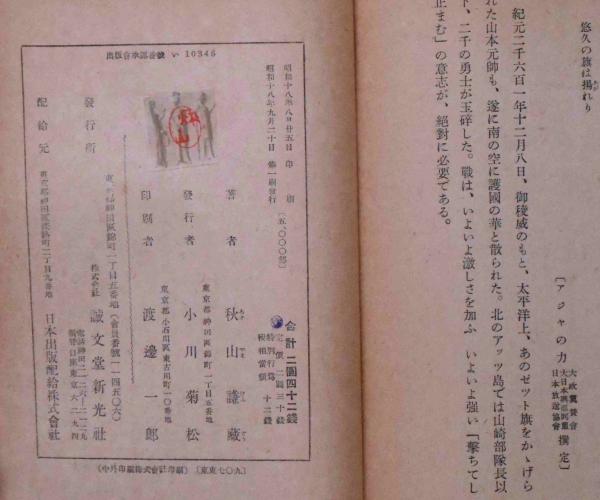 悠久の旗は揚れり
〔アジヤの力 大政翼賛会 大日本興亜同盟 日本放送協會 撰定〕
紀元二千六百一年十二月八日、御稜威のもと、太平洋上、あのゼット旗をかゝげら
れた山本元帥も、遂に南の空に護國の華と散られた。北のアッツ島では山崎部隊長以
下、二千の勇士が玉碎した。戰は、いよいよ激しさを加ふ いよいよ強い「撃ちてし
止まむ」の意志が、絶對に必要である。
出版會承認番號 い 10346
昭和十八年八月廿五日 印刷
昭和十八年九月二十日 第一刷發行 〔五,〇〇〇部〕
合計 二圓四十二錢
定價 二圓三十錢
特別行爲税相當額 十二錢
著者 秋山謙藏
東京都神田區錦町一丁目五番地
發行者 小川菊松
東京都小石川區東古川町一〇番地
印刷者 渡邊一郎
東京都神田區錦町一丁目五番地 (會員番號一一四五〇六)
發行所 株式會社 誠文堂新光社
東京都神田區淡路町二丁目九番地
配給元 日本出版配給株式會社
(中外印刷株式會社印刷) 〔東東七〇九〕